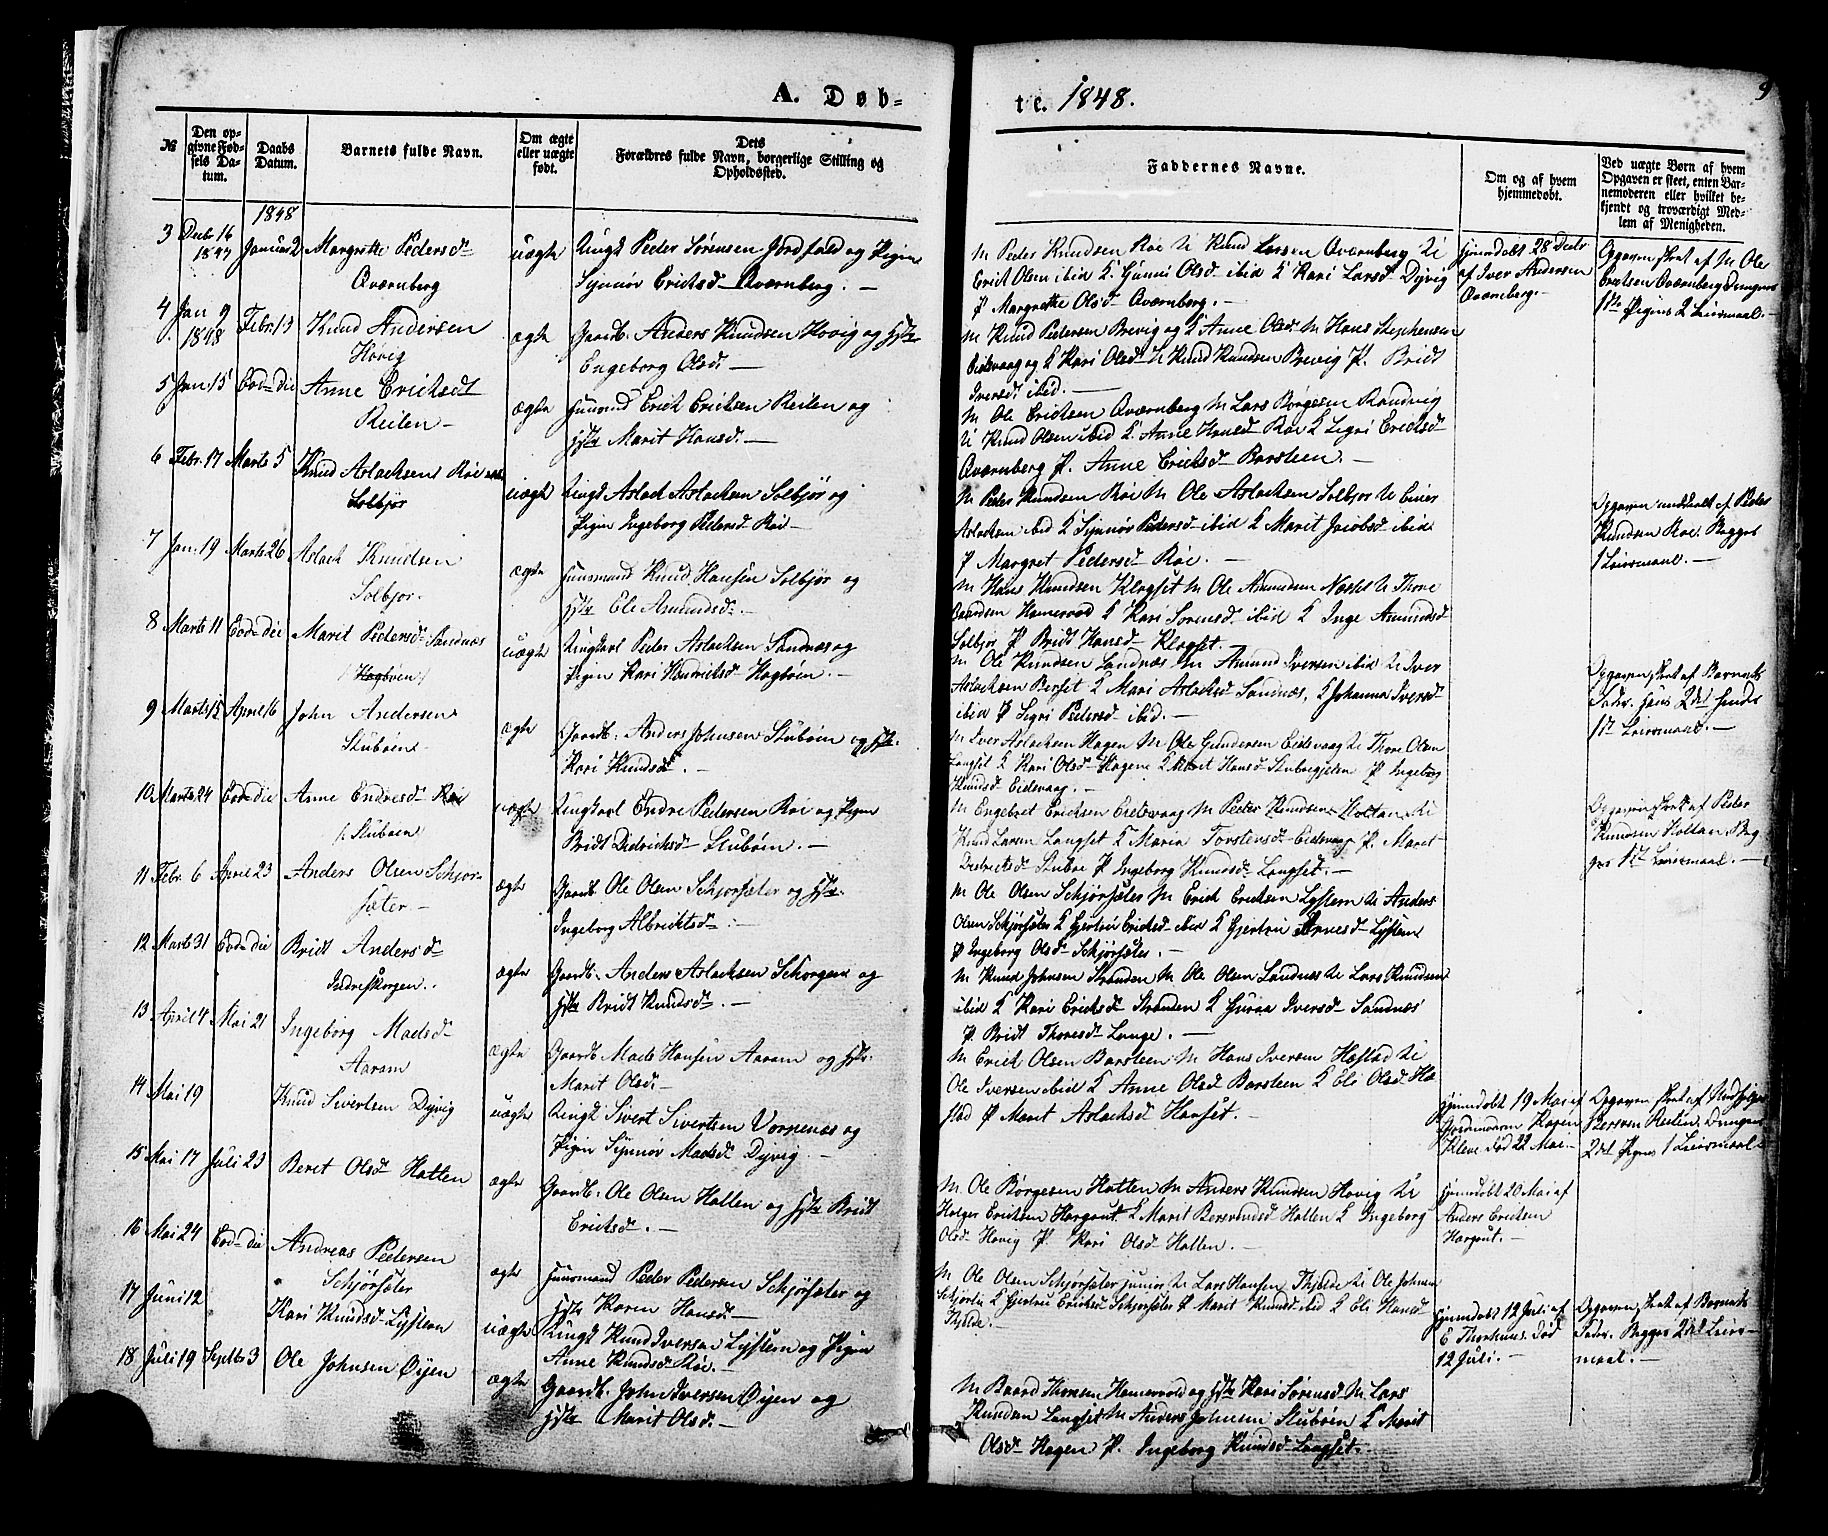 A. Døb-
te. 1848.
9
№
Den op-
givne Fød-
sels Da-
tum.
Daabs
Datum.
Barnets fulde Navn.
Om ægte
eller uægte
født.
Dets
Forældres fulde Navn, borgerlige Stilling og
Opholdssted.
Faddernes Navne.
Om og af hvem
hjemmedøbt.
Ved uægte Børn af hvem
Opgaven er skeet, enten Bar-
nemoderen eller hvilket be-
kjendt og troværdigt Med-
lem af Menigheden.
1848
3 Decbr 16 1847 Januar 2 Margrethe Pedersd
Qværnberg
uægte
Ungk Peder Sørensen Jordfald og Pigen
Synnøv Erichsd Qværnberg. —
M Peder Knudsen Roe U Knud Larsen Qværnberg U
Erich Olsen ibid K Gunni Olsd ibid K Kari Larsd Dyvig
P Margrethe Olsd Qværnberg. —
hjemdøbt 28 Decbr
af Iver Andersen
Qværnberg. —
Opgaven skeet af M Ole
Erichsen Qværnberg Drengens
1ste Pigens 2 Leiermaal.
4 Jan 9 1848 Febr. 13 Knud Andersen
Høvig
ægte
Gaardb. Anders Knudsen Hovig og Hste
Engeborg Olsd —
M Knud Pedersen Brevig og K Anne Olsd M Hans Stephensen
Eidsvaag og K Kari Olsd U Knud Knudsen Brevig P. Bridt
Iversdt ibid. —
5 Jan. 15 Eod die Anne Erichsdt
Reiten —
ægte
Huusmd Erich Erichsen Reiten og
Hste Marit Hansd. —
M Ole Erichsen Qværnberg M Lars Børgesen Randvig
U Knud Olsen ibid K Anne Hansd Roe K Sigri Erichsd
Qværnberg P. Anne Erichsd Barsteen. —
6 Febr. 17 Marts 5 Knud Aslachsen Roe
Solbjør
uægte
Ungk Aslach Aslachsen Solbjør og
Pigen Ingeborg Pedersd Roe —
M Peder Knudsen Roe M Ole Aslachsen Solbjør U Einer
Aslachsen ibid K Synnøv Pedersd ibid K Marit Jacobsd ibid
P Margret Pedersd Roe. —
Opgaven meddeelt af Peder
Knudsen Roe. Begges
1 Leiermaal. —
7 Jan. 19 Marts 26 Aslach Knudsen
Solbjør.
ægte
Huusmand Knud Hansen Solbjør og
Hste Eli Amundsd. —
M Hans Knudsen Klogset M Ole Amundsen Næste U Thore
Baardsen Hamervold K Kari Sørensd ibid K Inge Amundsd
Solbjør P Bridt Hansd Klogset. —
8 Marts 11 Eod die Marit Pedersd Sandnæs
/: Hagbøen :/
uægte
Ungkarl Peder Aslachsen Sandnæs og
Pigen Kari Henrichsd Hagbøen. —
M Ole Knudsen Sandnæs M Amund Iversen ibid U Iver
Aslachsen Berset K Mari Aslachsd Sandnæs, K Johanna Iversd
ibid P Sigri Pedersd ibid. —
Opgaven skeet af Barnets
Fader. Hans 2det hendes
1st Leiermaal. —
9 Marts 15 April 16 John Andersen
Stubøen —
ægte
Gaardb. Anders Johnsen Stubøen og Hste.
Kari Knudsd. —
M Iver Aslachsen Hagen M Ole Gundersen Eidsvaag U Thore Olsen
Langset K Kari Olsd Hagene K Marit Hansd Stubergseten P Ingeborg
Knudsd Eidsvaag. —
10 Marts 24 Eod die Anne Endresd Roe
/: Stubøen :/
uægte
Ungkarl Endre Pedersen Roe og Pigen
Bridt Didrichsd Stubøen. —
M Engebret Erichsen Eidsvaag M Peder Knudsen Holtan U
Knud Larsen Langset K Maria Torstensd Eidsvaag P. Maret
Didrichsd Stubøe P Ingeborg Knudsd Langset. —
Opgaven skeet af Peder
Knudsen Holtan. Beg-
ges 1st Leiermaal. —
11 Febr. 6 April 23 Anders Olsen Schjør-
sæter. —
ægte
Gaardb. Ole Olsen Schjørsæter og Hste.
Ingeborg Albrichtsd. —
M Ole Olsen Schjørsæter M Erich Erichsen Lystern U Anders
Olsen Schjørsæter K Gjertrü Erichsd ibid K Gjertrü Arnesd Lystern
P Ingeborg Olsd Schjørsæter. —
12 Marts 31 Eod die Bridt Andersd
Indreskorgen.
ægte
Gaardb. Anders Aslachsen Schorgene og
Hste Bridt Knudsd. —
M Knud Johnsen Stranden M Ole Olsen Sandnæs U Lars Knudsen
ibid K Kari Erichsd Stranden K Guraa Iversd Sandnæs
P. Bridt Thoresd Lange. —
13 April 4 Mai 21 Ingeborg Madsd
Aaram
ægte
Gaardb. Mads Hansen Aaram og Hste.
Marit Olsd. —
M Erich Olsen Barsteen M Hans Iversen Hæstad U
Ole Iversen ibid K Anne Olsd Barsteen K Eli Olsd Hæ
stad P Marit Aslachsd Hanset. —
14 Mai 19 Knud Sivertsen Dyvig
uægte
Ungk Sivert Sivertsen Vorpenæs og
Pigen Synnøv Madsd Dyvig. —
hjemdøbt 19 Mai af
Gjordmoderen Hagen
Kleve død 22 Mai —
Opgaven skeet af
Reiten, Drengens
2det Pigens 1 Leiermaal —
15 Mai 17 Juli 23 Beret Olsd Hatten
ægte
Gaardb. Ole Olsen Hatten og Hste Bridt
Erichsd. —
M. Ole Børgesen Hatten M Anders Knudsen Hovig U
Holger Erichsen Hargaut K Marit Bersvendsd Hatten K Ingeborg
Olsd Hovig P. Kari Olsd Hatten. —
hjemdøbt 20 Mai af
Anders Erichsen
Hargaut. —
16 Mai 24 Eod die Andreas Pedersen
Schjørsæter
ægte
Huusmand Peder Pedersen Schjørsæter og
Hste Karen Hansd —
M Ole Olsen Schjørsæter junior U Lars Hansen Tjelde U Ole Johnsen
Schjørli K Gjertru Erichsd Schjørsæter P Marit Knudsd ibid K Eli Hansd
Tjelde. —
17 Juni 12 Kari Knudsd Lystern
uægte
Ungk Knud Iversen Lystern og Pigen
Anne Knudsd Roe. —
hjemdøbt 12 Juli af
E Thorhuus. død
12 Juli. —
Opgaven skeet af Barnets
Fader. Begges 2det Leier-
maal. —
18 Juli 19 Septbr 3 Ole Johnsen Øyen
ægte
Gaardb. John Iversen Øyen og
Hste Marit Olsd. —
M Baard Thoresen Hamervold og Hste Kari Sørensd M Lars
Knudsen Langset M Anders Johnsen Stubøen K Marit
Olsd Hagen P. Ingeborg Knudsd Langset. —